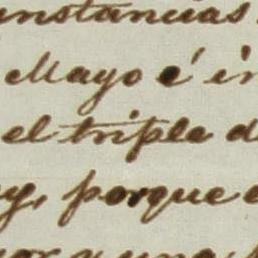 unstancias
Mayo é in
el triple d
y, porque e
y una